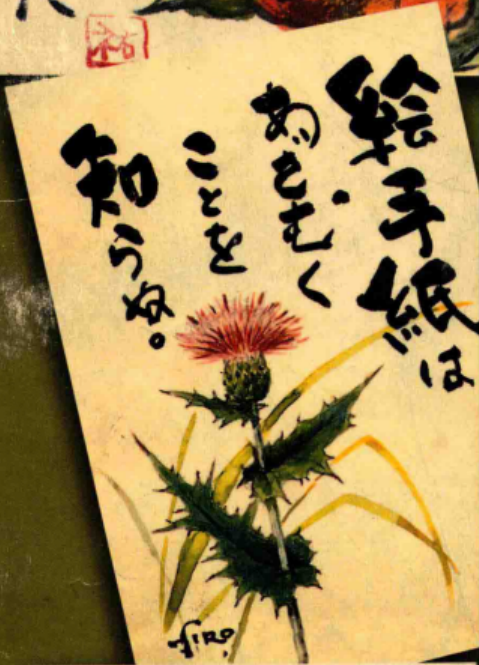 絵手紙は
あざむく
ことを
知らぬ。
HIRO